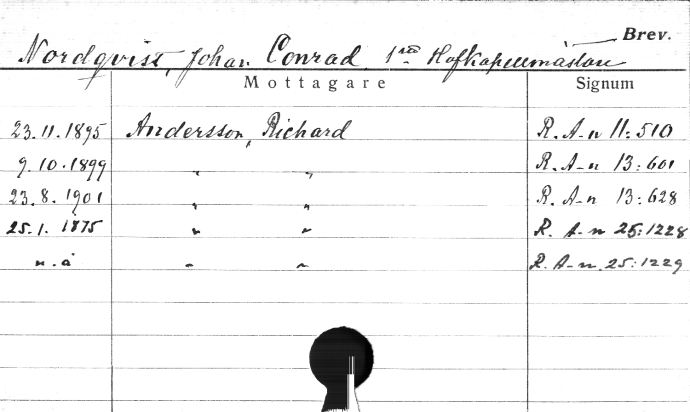 Brev.
Nordqvist, Johan Conrad. 1ste Hofkapellmästare
Mottagare Signum
23.11.1895 Andersson, Richard R. A-n 11:510
9.10.1899 " " R. A-n 13:601
23.8.1901 " " R. A-n 13:628
25.1.1875 " " R. A-n 25:1228
n.å " " R. A-n. 25:1229